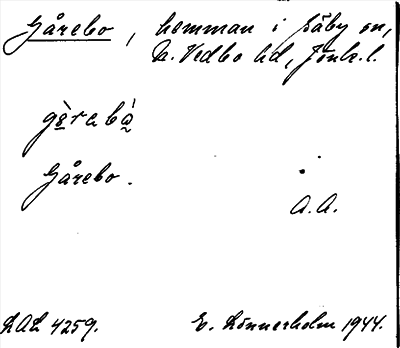 Gårebo, hemman i Säby sn,
N. Vedbo hd, Jönk. l.
gårabo
Gårebo.
A. A.
LAL 4259.
E. Lönnerholm 1944.